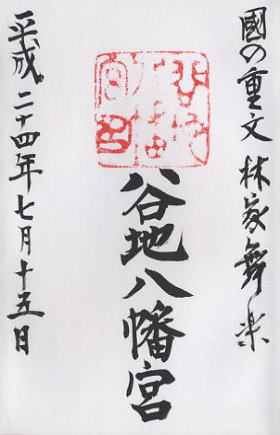 國の重文 林家舞楽
谷地八幡宮
平成二十四年七月十五日